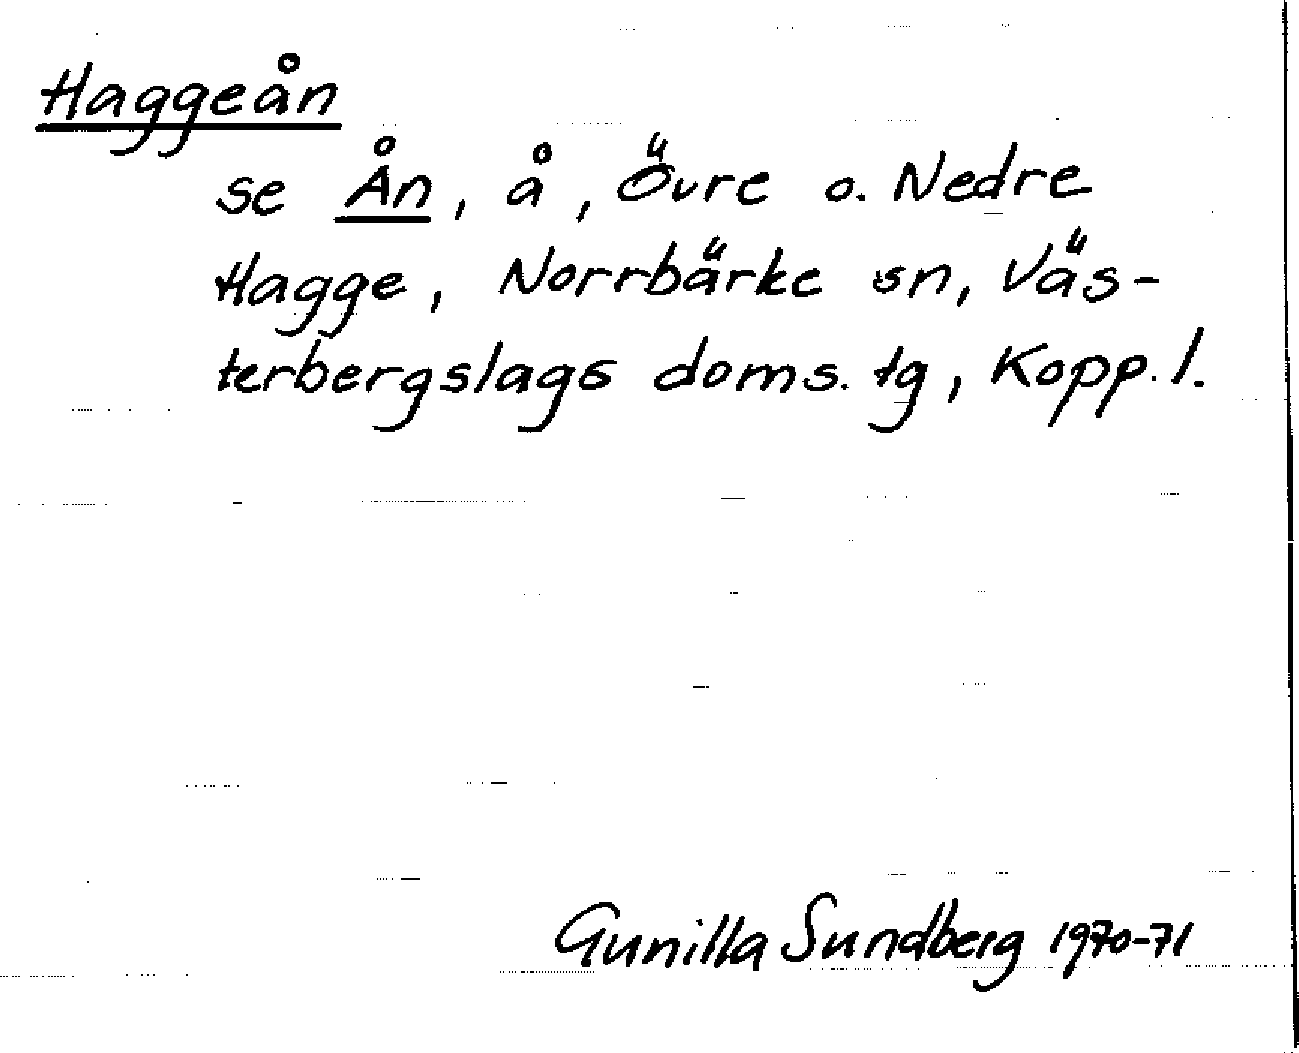 Haggeån
se Ån, å, Övre o. Nedre
Hagge, Norrbärke sn, Väs-
terbergslags doms. tg, Kopp. l.
Gunilla Sundberg 1970-71